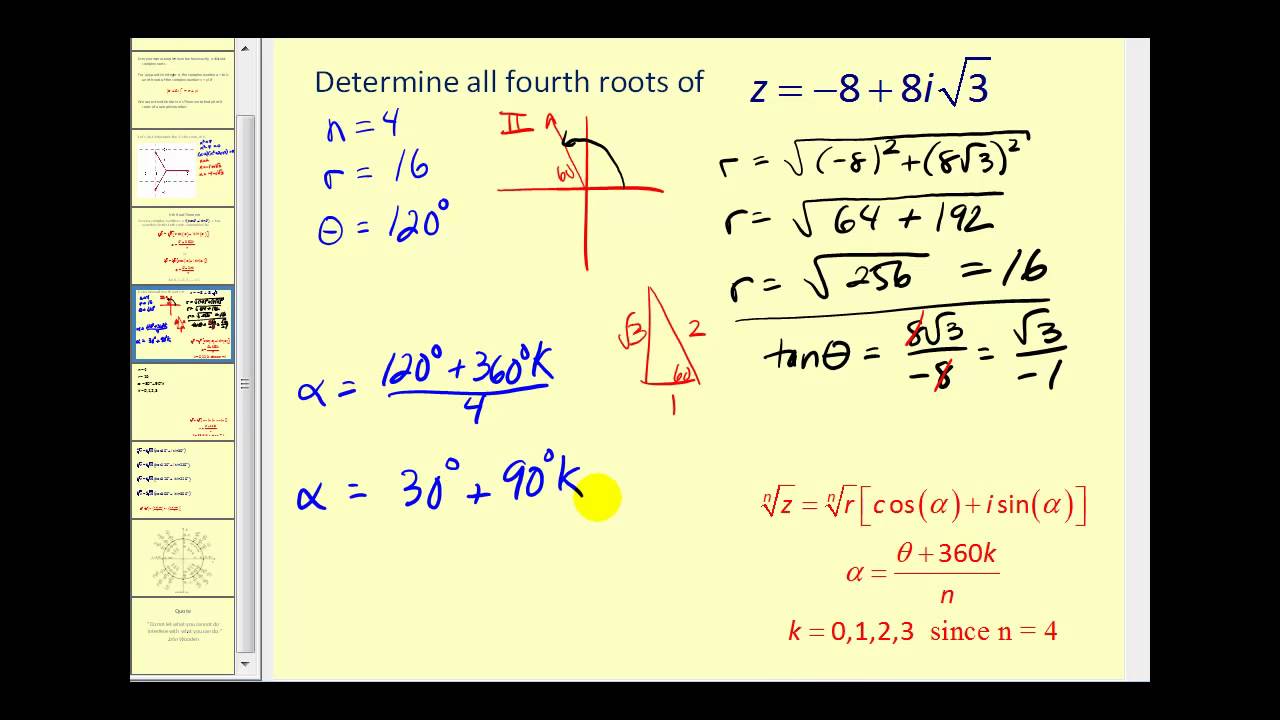 Determine all fourth roots of z = −8 + 8i√3
n = 4
r = 16
θ = 120°
II
60
r = √((-8)² + (8√3)²)
r = √(64 + 192)
r = √256 = 16
tanθ = 8√3/-8 = √3/-1
√3
2
60
1
α = (120° + 360°K)/4
α = 30° + 90°k
ⁿ√z = ⁿ√r[cos(α) + i sin(α)]
α = (θ + 360k)/n
k = 0,1,2,3 since n = 4
Quote
"Do not let what you cannot do
interfere with what you can do."
John Wooden